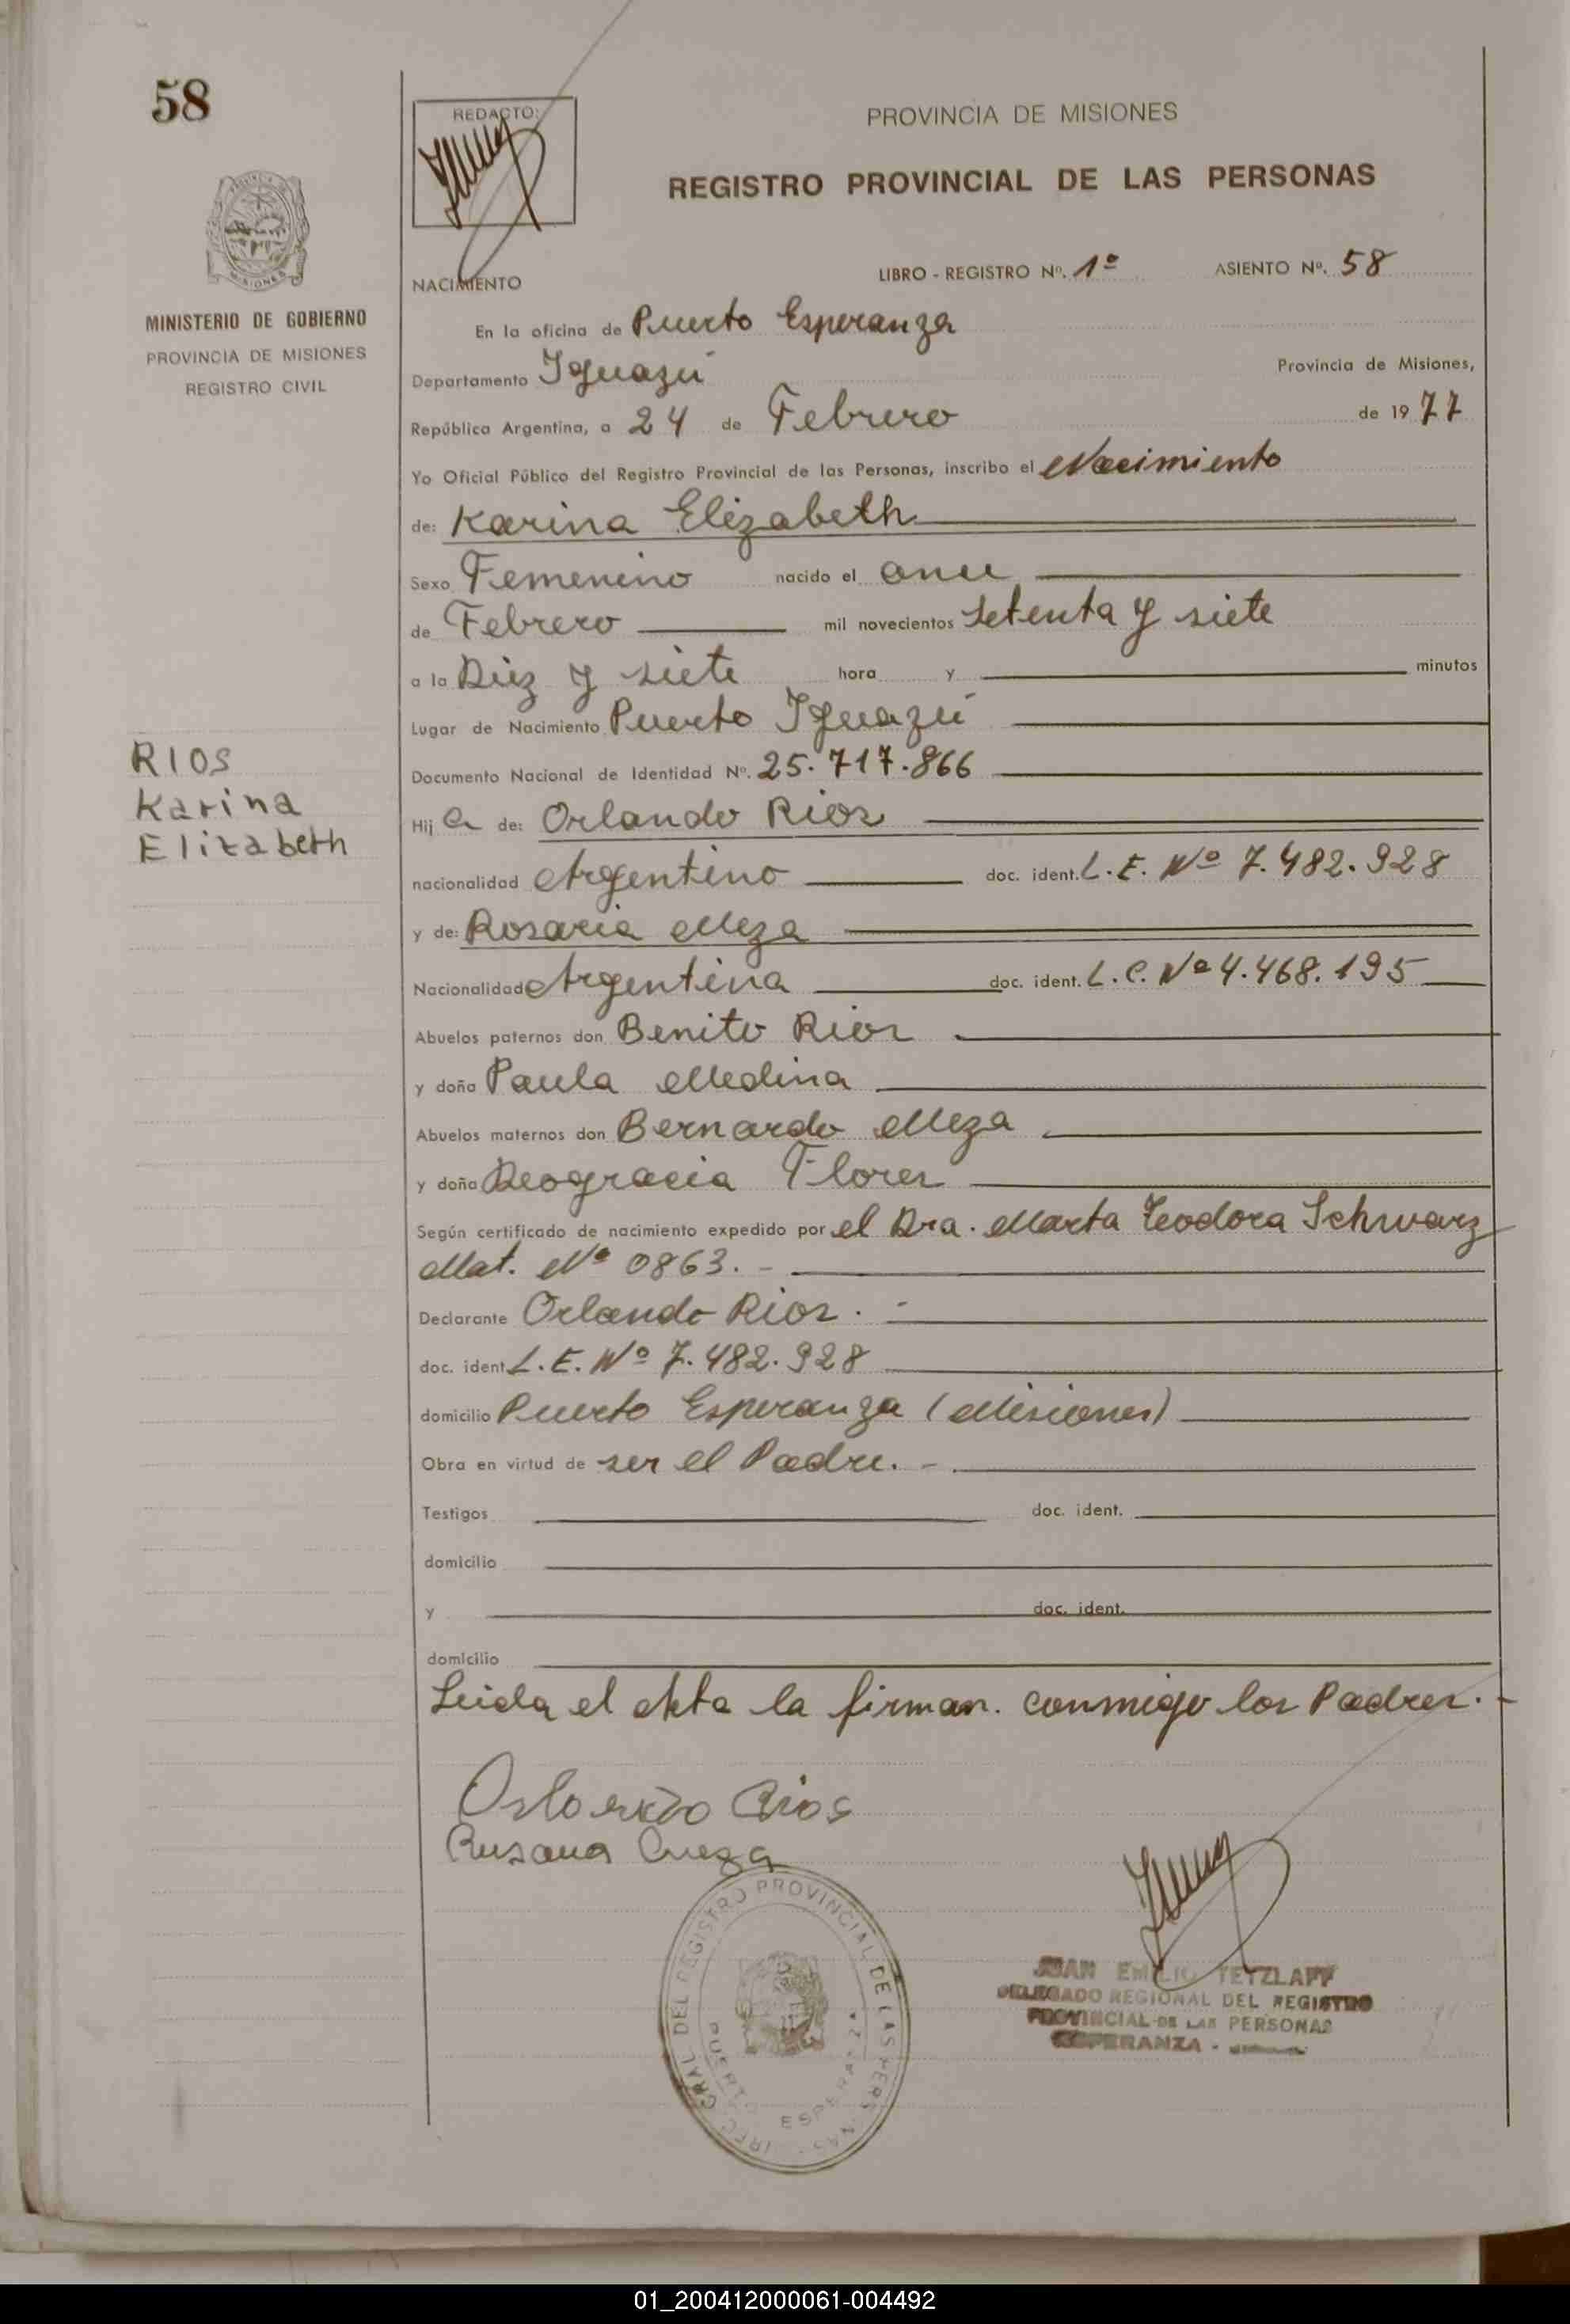 58
REDACTO:
PROVINCIA DE MISIONES
REGISTRO PROVINCIAL DE LAS PERSONAS
MISIONES
MINISTERIO DE GOBIERNO
PROVINCIA DE MISIONES
REGISTRO CIVIL
NACIMIENTO
LIBRO - REGISTRO Nº. 1º ASIENTO Nº. 58
En la oficina de Puerto Esperanza
Departamento Iguazú Provincia de Misiones,
República Argentina, a 24 de Febrero de 1977
Yo Oficial Público del Registro Provincial de las Personas, inscribo el Nacimiento
de: Karina Elizabeth
Sexo Femenino nacido el once
de Febrero mil novecientos setenta y siete
a la Diez y siete hora y minutos
Lugar de Nacimiento Puerto Iguazú
Documento Nacional de Identidad Nº. 25.717.866
RIOS
Karina
Elizabeth
Hija de: Orlando Rios
nacionalidad Argentino doc. ident. L.E. Nº 7.482.928
y de: Rosaria Meza
Nacionalidad Argentina doc. ident. L.C. Nº 4.468.195
Abuelos paternos don Benito Rios
y doña Paula Medina
Abuelos maternos don Bernardo Meza
y doña Deogracia Flores
Según certificado de nacimiento expedido por el Dra. Marta Teodora Schwarz
Mat. Nº 0863. -
Declarante Orlando Rios. -
doc. ident L.E. Nº 7.482.928
domicilio Puerto Esperanza (Misiones)
Obra en virtud de ser el Padre. -
Testigos doc. ident.
domicilio
y doc. ident.
domicilio
Leida el Acta la firman. conmigo los Padres. -
Orlando Rios
DIREC. GRAL. DEL REGISTRO PROVINCIAL DE LAS PERSONAS
PUERTO ESPERANZA
JUAN EMILIO TETZLAFF
DELEGADO REGIONAL DEL REGISTRO
PROVINCIAL DE LAS PERSONAS
ESPERANZA -
01_200412000061-004492